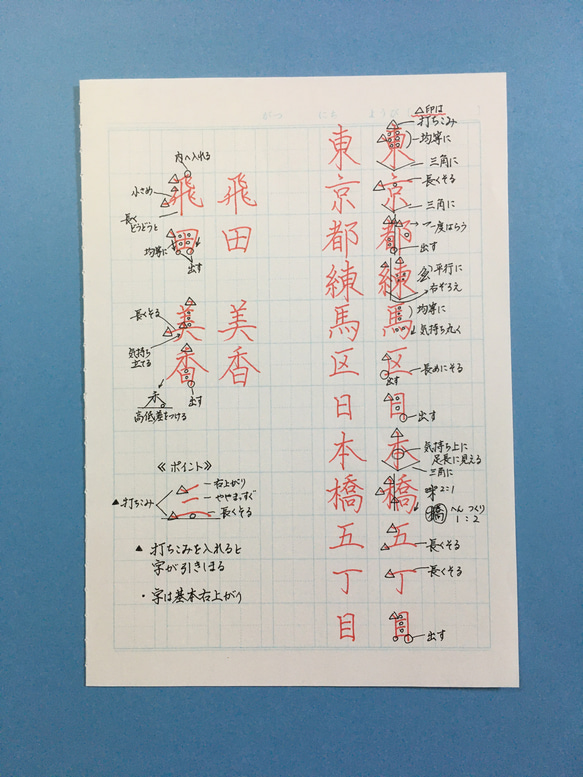 △印は
打ちこみ
均等に
三角に
長くそる
三角に
一度はらう
出す
平行に
右ぞろえ
均等に
気持ち丸く
長めにそる
出す
出す
気持ち上に
足長に見える
三角に
2:1
へん つくり
1:2
長くそる
長くそる
出す
東京都練馬区日本橋五丁目
東京都練馬区日本橋五丁目
飛田
美香
飛田
美香
内へ入れる
小さめ
長く
どうどうと
均等に
出す
長くそる
気持ち
立てる
出す
高低差をつける
《ポイント》
右上がり
ややまっすぐ
長くそる
▲打ちこみ
▲打ちこみを入れると
字が引きしまる
・字は基本右上がり